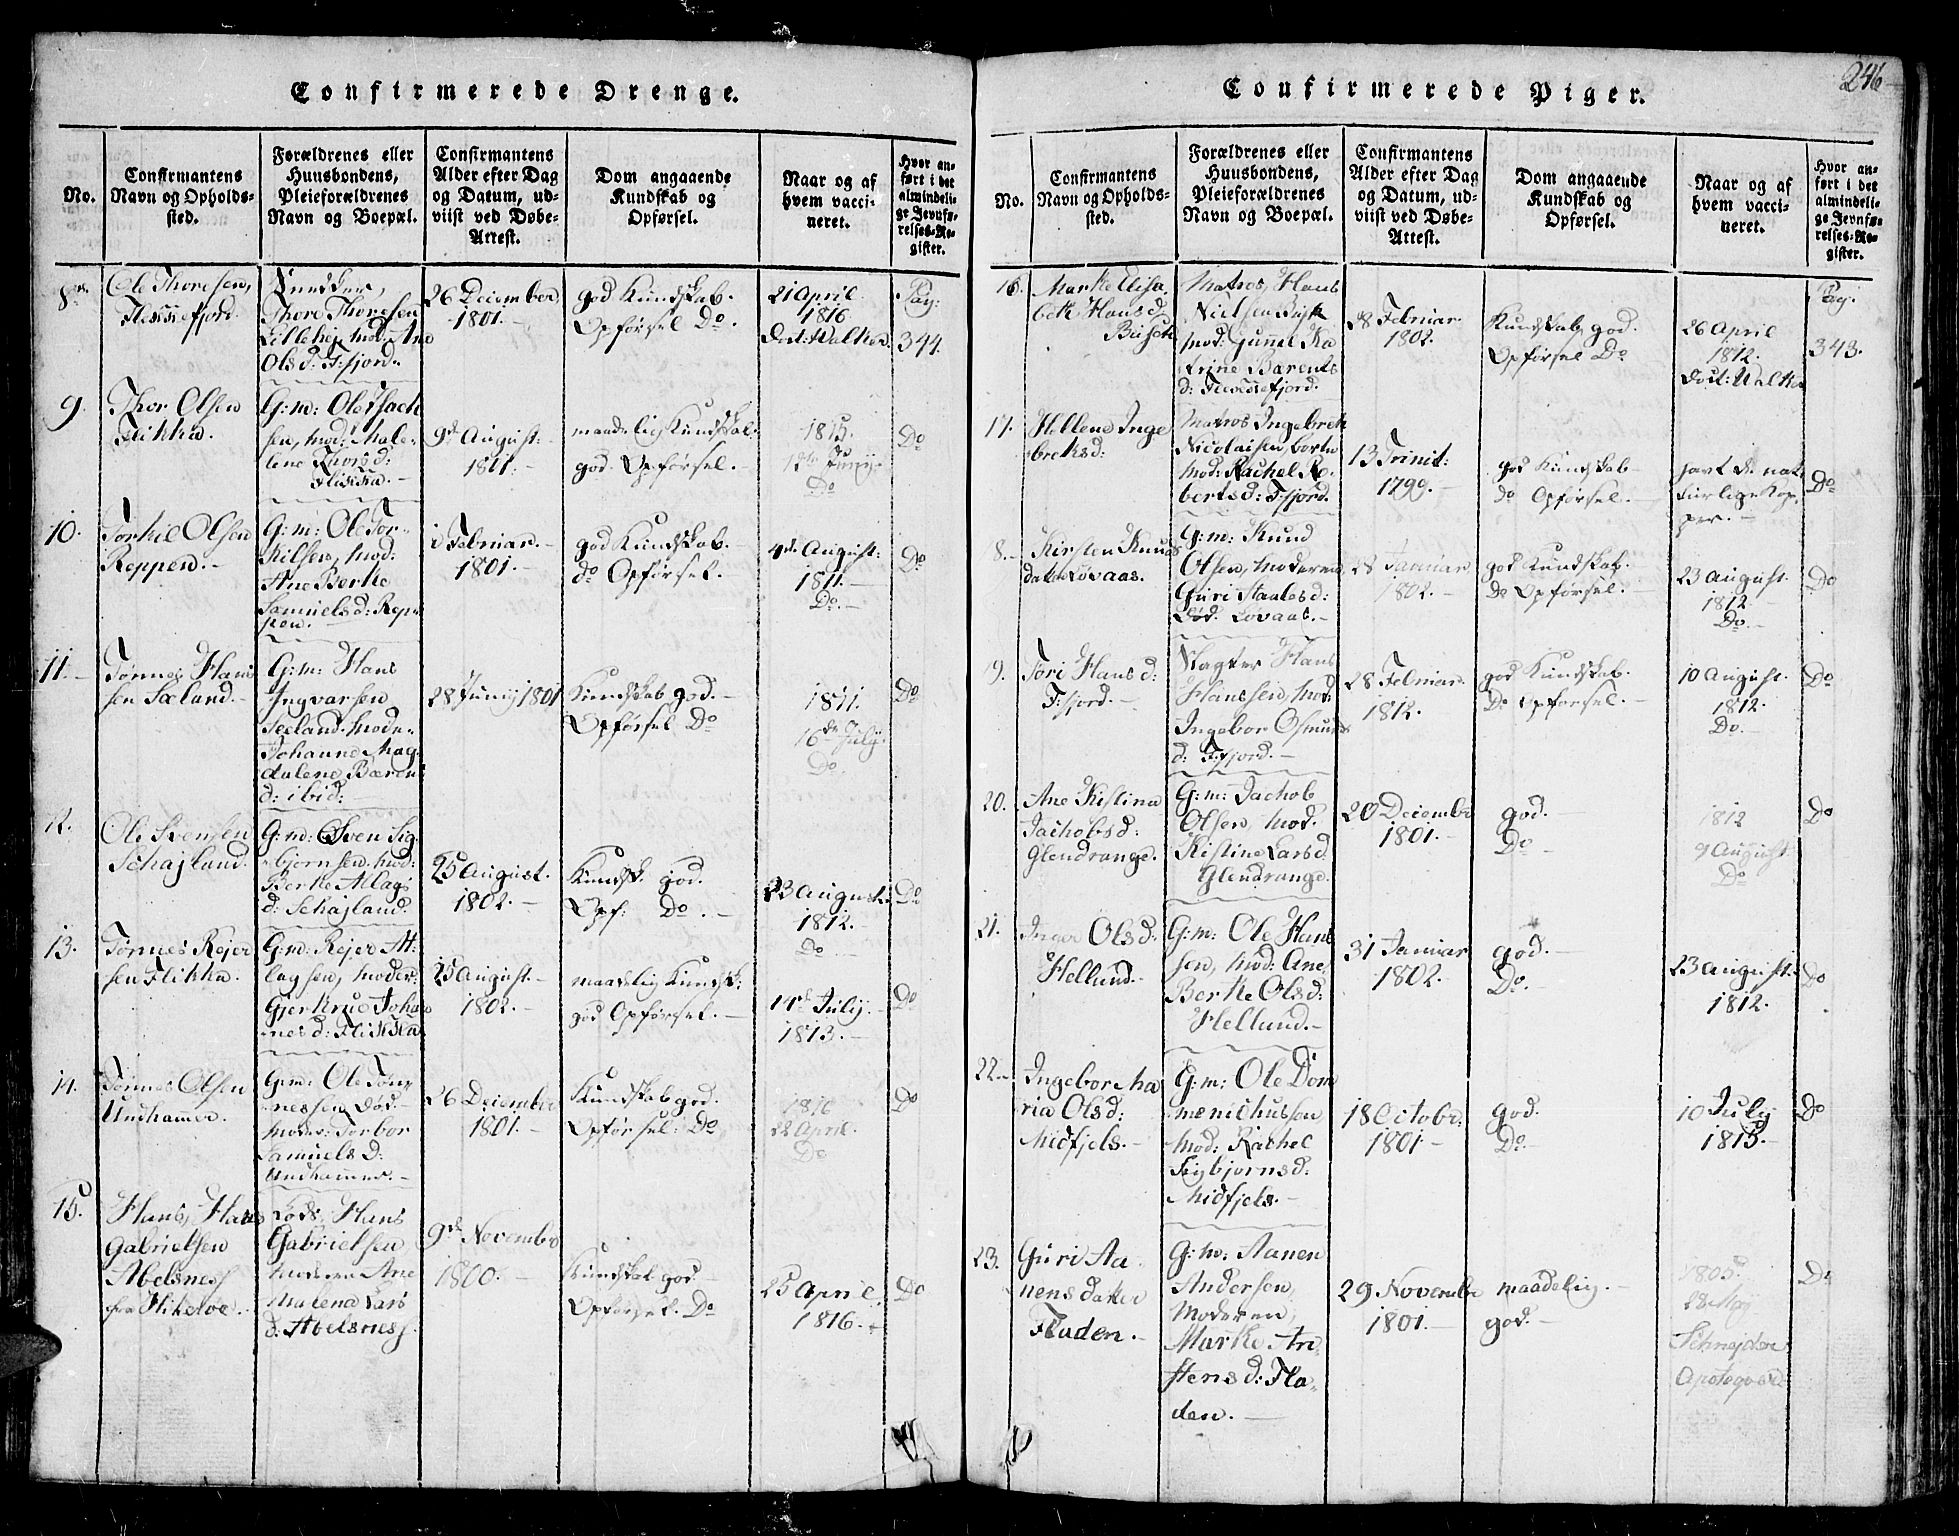 Confirmerede Drenge.
No.
Confirmantens
Navn og Opholds-
sted.
Forældrenes eller
Huusbondens,
Pleieforældrenes
Navn og Boepæl.
Confirmantens
Alder efter Dag
og Datum, ud-
viist ved Døbe-
Attest.
Dom angaaende
Kundskab og
Opførsel.
Naar og af
hvem vacci-
neret.
Hvor an-
ført i det
almindeli-
ge Jevnfø-
relses-Re-
gister.
8
Ole Thoresen,
Flessiefjord.
Thore Thoresen
Lillehei, mod: Ane
Olsd: F:fjord.
26 December
1801.
god Kundskab.
Opførsel Do.
21 April
1816
Doct: Walker
Pag:
344.
9.
Thor Olsen
Flikka.
G:m: Ole Isach
sen, mod: Male-
lene Thorsd:
Flikka.
9d August:
1801.
maadelig Kundskab:
god Opførsel.
1815.
12te Junij
Do
Do
10.
Torkil Olsen
Reppen.
G:m: Ole Tor-
kilsen, mod:
Ane Berthe
Samuelsd: Rep-
pen.
1 Februar.
1801.
god Kundskab.
do Opførsel.
4de August:
1811.
Do.
Do
11.
Tønnes Hans
sen Sæland.
G:m: Hans
Ingvarsen
Seeland. mode-
Johanne Mag-
dalene Bæren
d: ibid:
28 Junij 1801
Kundskab god.
Opførsel Do
1811.
16de Julij.
Do.
Do
12.
Ole Svensen
Schajland.
G:m: Sven Sig-
bjørnsen. mod:
Berthe Allags
d: Schajland.
25 August.
1802.
Kundsk. god.
Opf: Do.
23 August
1812.
Do
Do
13.
Tønnes Rejer
sen Flikka.
G:m: Rejer At-
lagsen, moder:
Gjertrud Johan
nesd: Flikka
25 August
1802.
maadelig Kundsk:
god Opførsel.
14de Julij.
1813.
Do
14.
Tønnes Olsen
Undhamer.
G:m: Ole Tøn-
nessen død.
moder: Torbor
Samuels D:
Undhammer.
26 December
1801.
Kundskab god.
Opførsel: Do
1816
28 April.
Do
Do
15.
Hans, Hans
Gabrielsen
Abelsness
fra Hiterøe.
Lods, Hans
Gabrielsen
moderen Ane
Malena Lars
d: Abelsness.
9de November
1800.
Kundskab god
Opførsel. Do
25 April
1816.
Do
Confirmerede Piger.
246
No.
Confirmantens
Navn og Opholds-
sted.
Forældrenes eller
Huusbondens,
Pleieforældrenes
Navn og Boepæl.
Confirmantens
Alder efter Dag
og Datum, ud-
viist ved Døbe-
Attest.
Dom angaaende
Kundskab og
Opførsel.
Naar og af
hvem vacci-
neret.
Hvor an-
ført i det
almindeli-
ge Jevnfø-
relses-Re-
gister.
16.
Marte Elisa
beth Hansd
Matros, Hans
Nielsen
mod: Gunnel Ka
trine Barents
d: Flessefjord.
28 Februar
1802.
Kundskab god.
Opførsel Do
26 April
1812.
Doct: Walker
Pag.
343.
17.
Hellene Inge
breksd:
Matros Ingebreth
Nicolaisen,
mod: Rachel Ro-
bertsd: F:fjord.
13 Trinit:
1799.
god Kundskab
do Opførsel.
havt de nat
turlige Kop-
per.
Do
8.
Kirsten Knuds
datter Løvaas.
G:m: Knud
Olsen, moderen
Guri Staalesd:
død. Løvaas.
28 Januar
1802.
god Kundskab.
do Opførsel.
23 August.
1812
Do.
Do
9.
Tori Hansd:
F:fjord.
Slagter Hans
Hanssen, mod:
Ingebor Osmunds
d: F:fjord.
28 Februar.
1812.
god Kundskab.
Do Opførsel.
10 August.
1812.
Do.
Do
20.
Ane Kistina
Jachobsd:
Glendrange.
G:m: Jachob
Olsen, mod.
Kistine Larsd.
Glendrange.
20 December
1801.
god.
Do
1812
9 August
Do
Do
21.
Inger Olsd:
Hellund.
G:m: Ole Hans
sen, mod: Ane
Berthe Olsd:
Hellund.
31 Januar
1802.
god.
Do.
23 August.
1812.
Do
22.
Ingebor Ma
ria Olsd:
Midfjels.
G:m: Ole Dom
menichussen
mod: Rachel
Sigbjørnsd:
Midfjels.
18 October.
1801
god.
Do.
10 July
1815.
Do
23.
Guri Aa-
nensdatter
Fladen.
G:m: Aanen
Andersen,
Moderen,
Marthe An-
stensd: Fla-
den.
29 November
1801.
maadelig.
god.
1805
28 May
Schnejder
Do